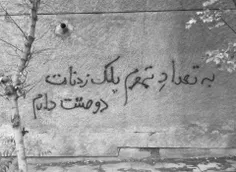 به تعداد تموم پلک زدنات
دوستت دارم